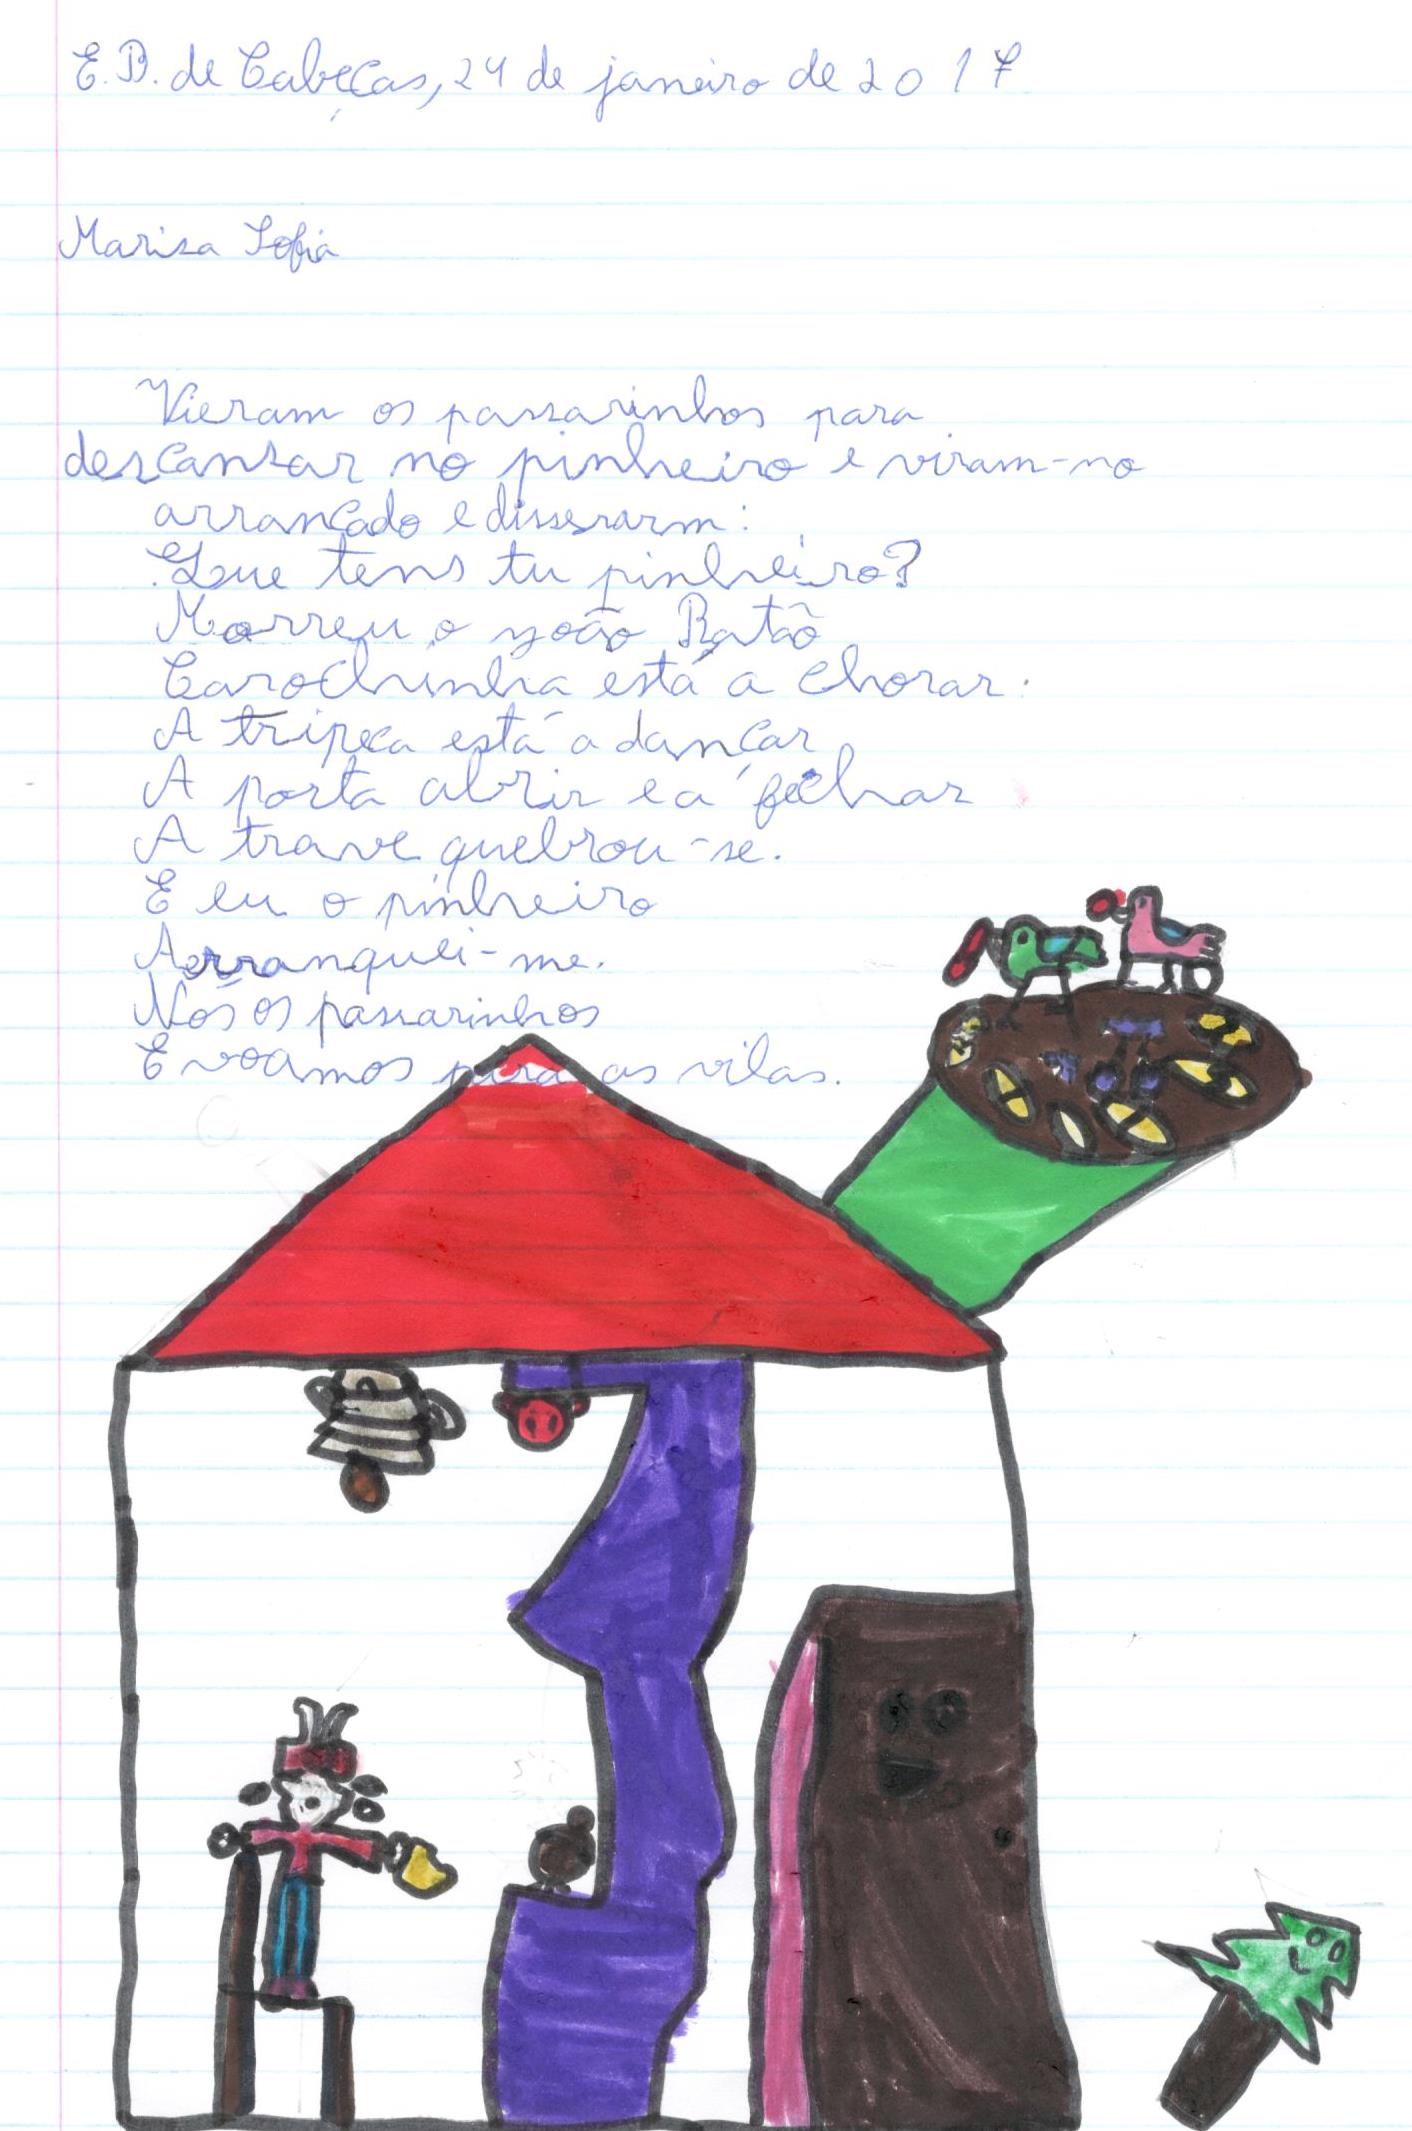 E.B. de Cabeças, 24 de janeiro de 2017
Marisa Sofia
Vieram os passarinhos para
descansar no pinheiro e viram-no
arrançado e disserarm:
Que tens tu pinheiro?
Morreu o yoão Ratão
Carochinha está a chorar.
A tripeça está a dançar
A porta abrir e a fechar
A trave quebrou-se.
E eu o pinheiro
Arranquei-me.
Nós os passarinhos
E voamos para as vilas.